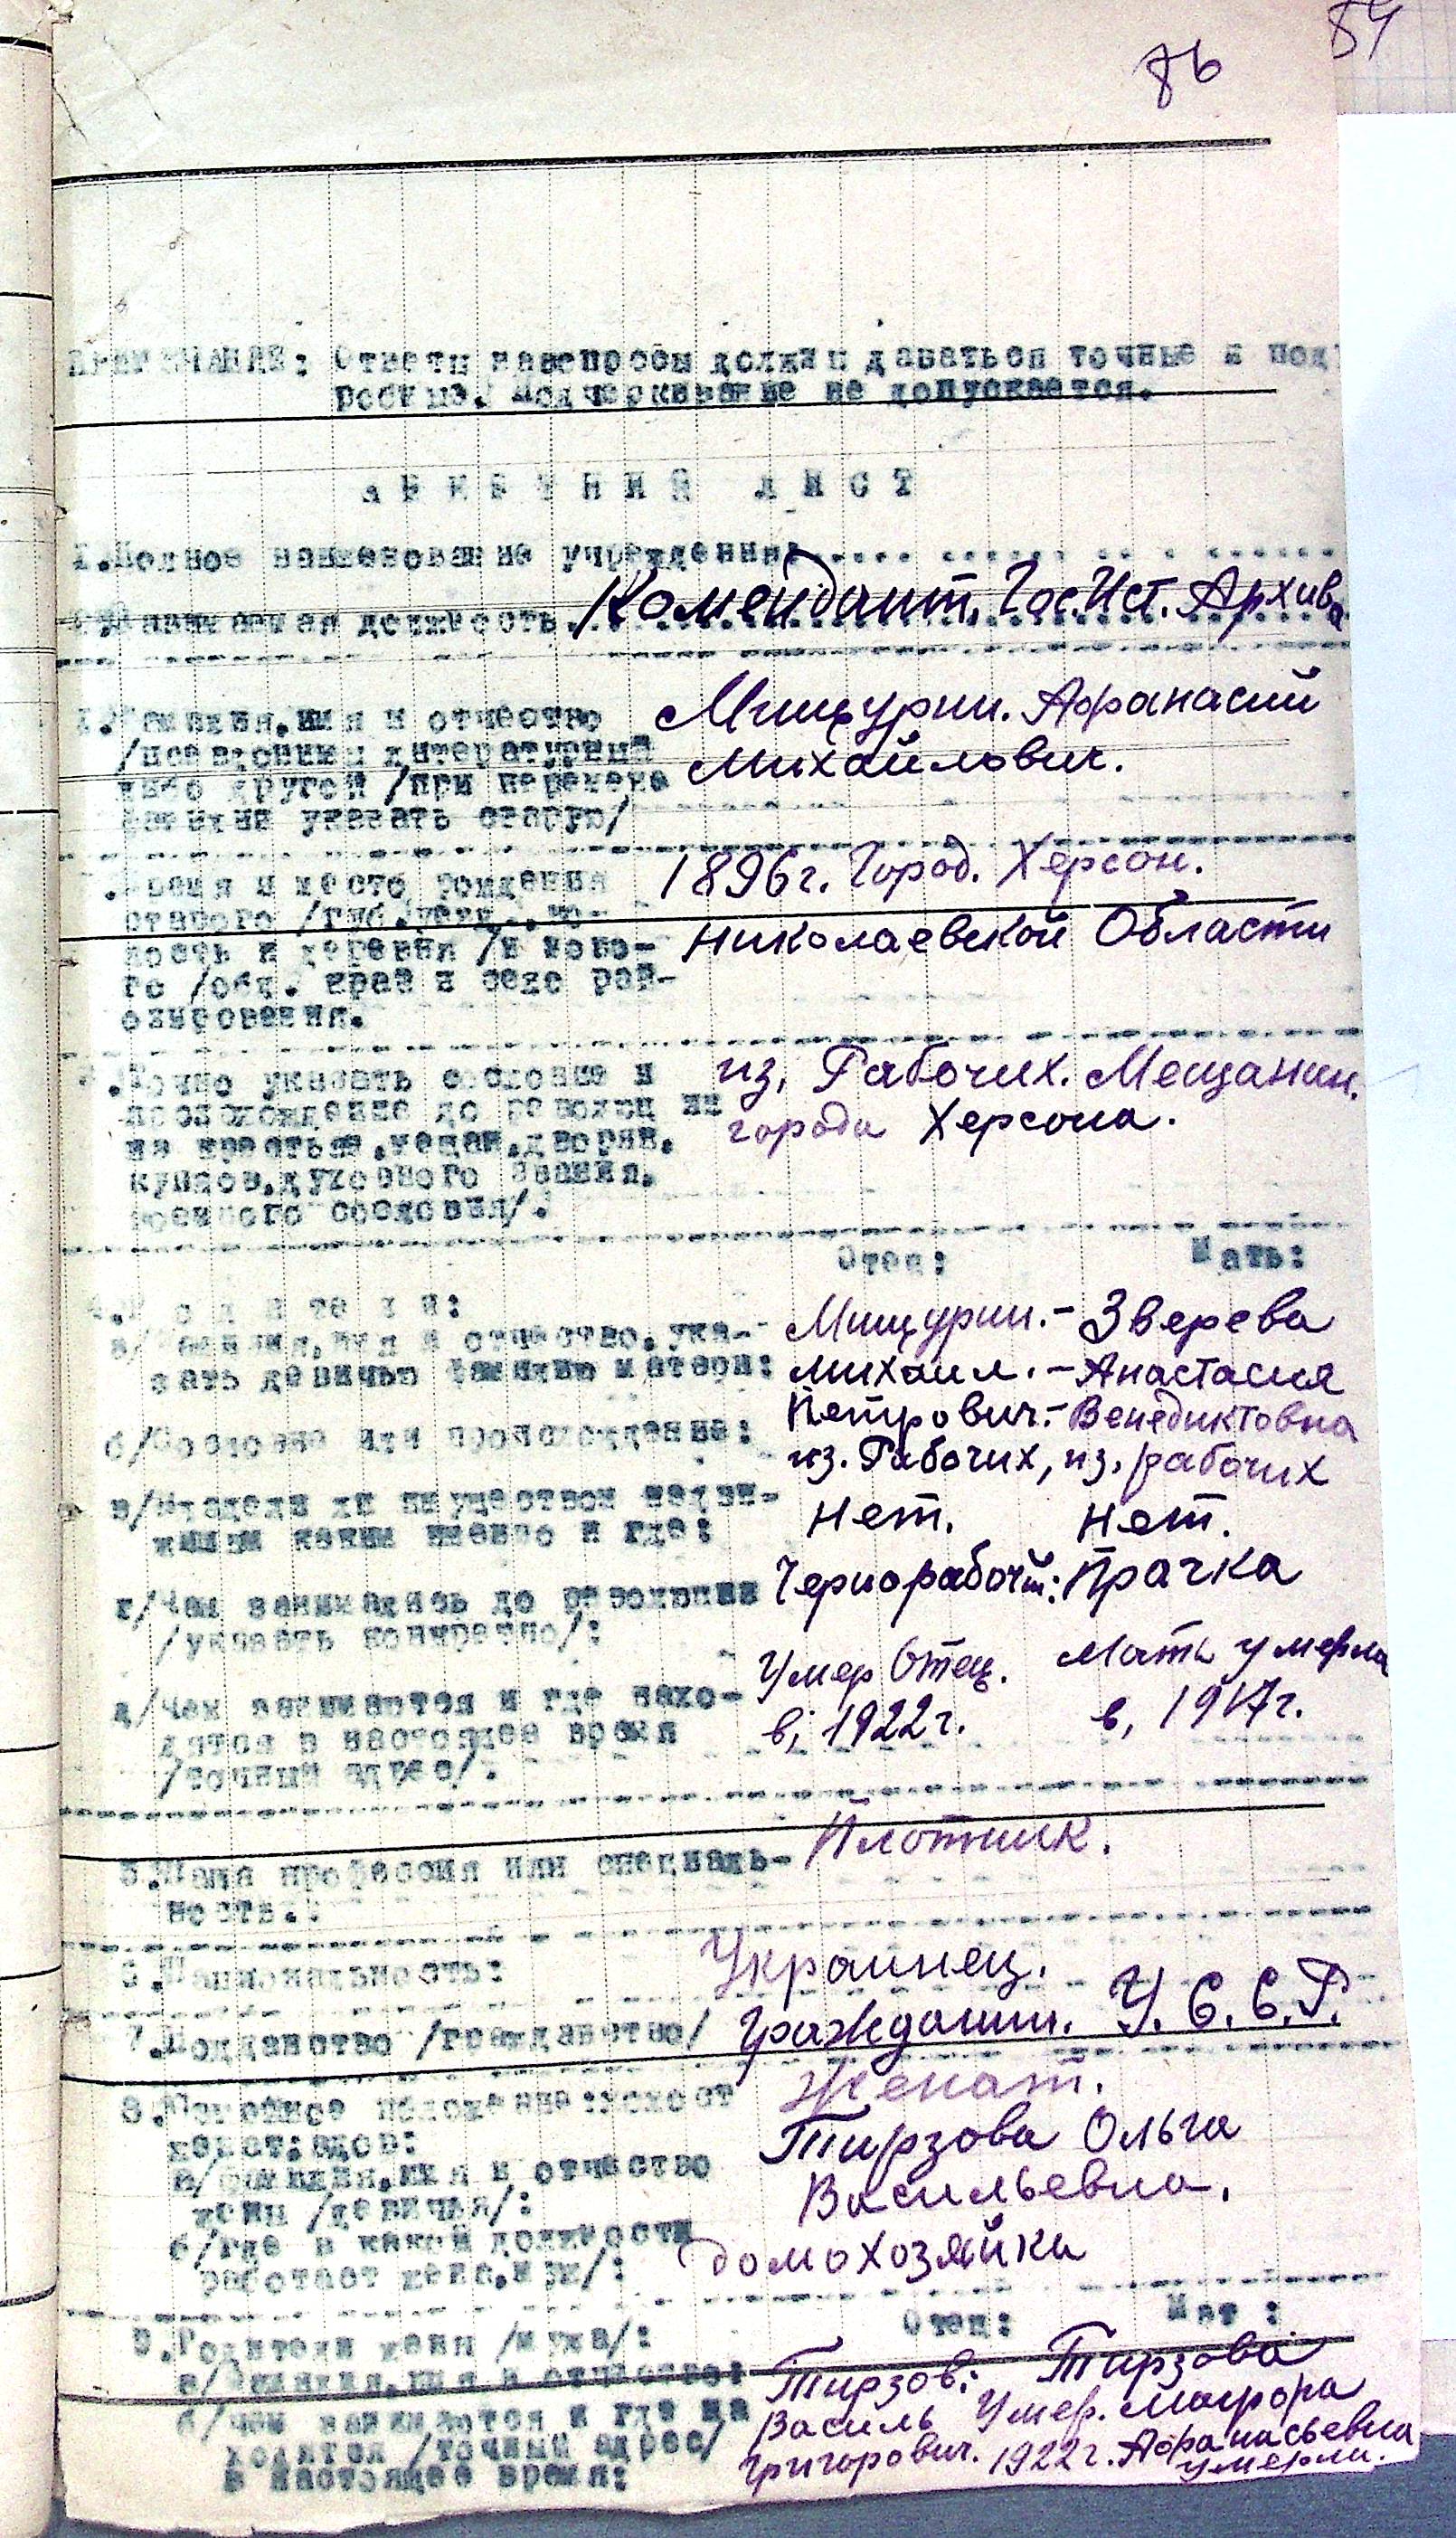 84
86
ПРИМЕЧАНИЕ: Ответы на вопросы должны даваться точные и под
робные. Подчеркивание не допускается.
АНКЕТНЫЙ ЛИСТ
1.Полное наименование учреждения:
Комендант. Гос.Ист. Архива
должность
Мищурин. Афанасий
1.Фамилия,имя и отчество
/псевдонимы литературный
Михайлович.
либо другой /при перемене
фамилии указать старую/
1896г. Город. Херсон.
2.Время и место рождения
старого /губ.уезд.,во-
Николаевской Области
лость и деревня /и ново-
го /обл. край и село рай-
онирования.
3.Точно указать сословие и
из, Рабочих. Мещанин.
происхождение до революции из
города Херсона.
из крестьян,мещан,дворян,
купцов,духовного звания,
военного сословия/.
Отец: Мать:
4.Р о д и т е л и:
а/Фамилия,имя и отчество,ука-
Мищурин.- Зверева
зать девичью фамилию матери:
Михаил.- Анастасия
Петрович.- Венедиктовна
б/Сословие или происхождение:
из. Рабочих, из, рабочих
в/Владели ли имуществом недви-
жимым каким именно и где:
Нет. Нет.
г/Чем занимались до революции
Чернорабочий: Прачка
/указать конкретно/:
Умер Отец. Мать умерла
д/Чем занимаются и где нахо-
дятся в настоящее время
в, 1922г. в, 1917г.
/точный адрес/:
Плотник.
5.Ваша профессия или специаль-
ность:
6.Национальность:
Украинец.
7.Подданство /гражданство/
Гражданин. У.С.С.Р.
8.Семейное положение:холост
Женат.
женат:вдов:
Тирзова Ольга
а/фамилия,имя и отчество
жены /девичья/:
Васильевна.
б/где в какой должности
работает жена,муж/:
домохозяйка
Отец: Мат :
9.Родители жены /мужа/:
а/Фамилия,имя и отчество:
Тирзов: Тирзова
б/чем занимаются и где на
Василь Умер.
ходятся /точный адрес/
Григорович. 1922г. Афанасьевна
в настоящее время:
умерла.